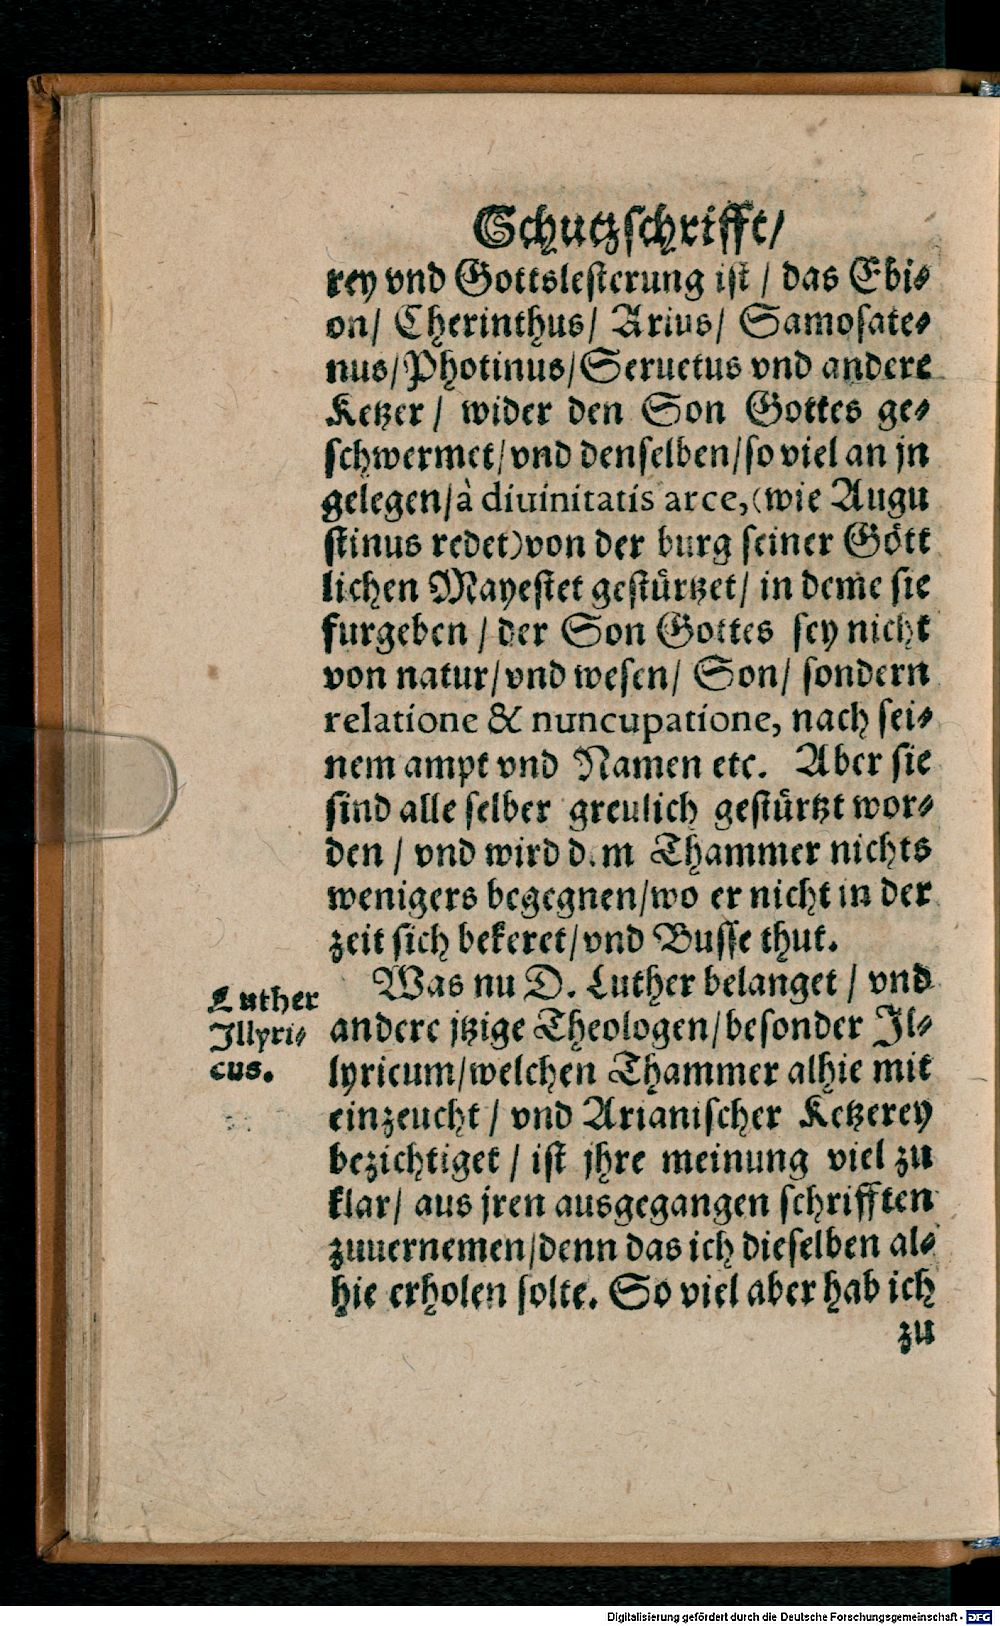 Schutzschrifft/
rey vnd Gottslesterung ist / das Ebi⸗
on/ Cherinthus/ Arius/ Samosate⸗
nus/Photinus/Seruetus vnd andere
Ketzer / wider den Son Gottes ge⸗
schwermet/vnd denselben/so viel an jn
gelegen/à diuinitatis arce,(wie Augu
stinus redet)von der burg seiner Gött
lichen Mayestet gestürtzet/ in deme sie
furgeben / der Son Gottes sey nicht
von natur/vnd wesen/ Son/ sondern
relatione & nuncupatione, nach sei⸗
nem ampt vnd Namen etc. Aber sie
sind alle selber greulich gestürtzt wor⸗
den / vnd wird dem Thammer nichts
wenigers begegnen/wo er nicht in der
zeit sich bekeret/vnd Busse thut.
Was nu D. Luther belanget / vnd
Luther
andere jtzige Theologen/besonder Jl⸗
Jllyri⸗
lyricum/welchen Thammer alhie mit
cus.
einzeucht / vnd Arianischer Ketzerey
bezichtiget / ist jhre meinung viel zu
klar/ aus jren ausgegangen schrifften
zuuernemen/denn das ich dieselben al⸗
hie erholen solte. So viel aber hab ich
zu
Digitalisierung gefördert durch die Deutsche Forschungsgemeinschaft - DFG